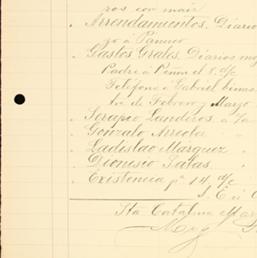 ros con maiz
" Arrendamentos. Diario
zo á Panuco
" Gastos Grales. Diarios m
Padre á Peña el
Teléfono á Gabriel
tre de Febrero y Marzo
" Serapio Landeros á
" Gonzalo Arreola "
" Ladislao Marquez "
" Dionisio Salas "
" Existencia pª 14
S. E. ú O
Sta Catalina Mar